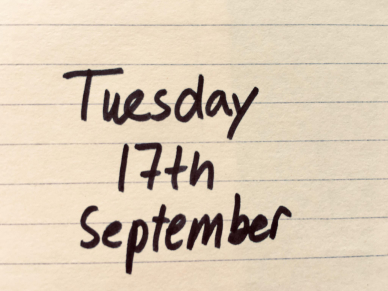 Tuesday
17th
September